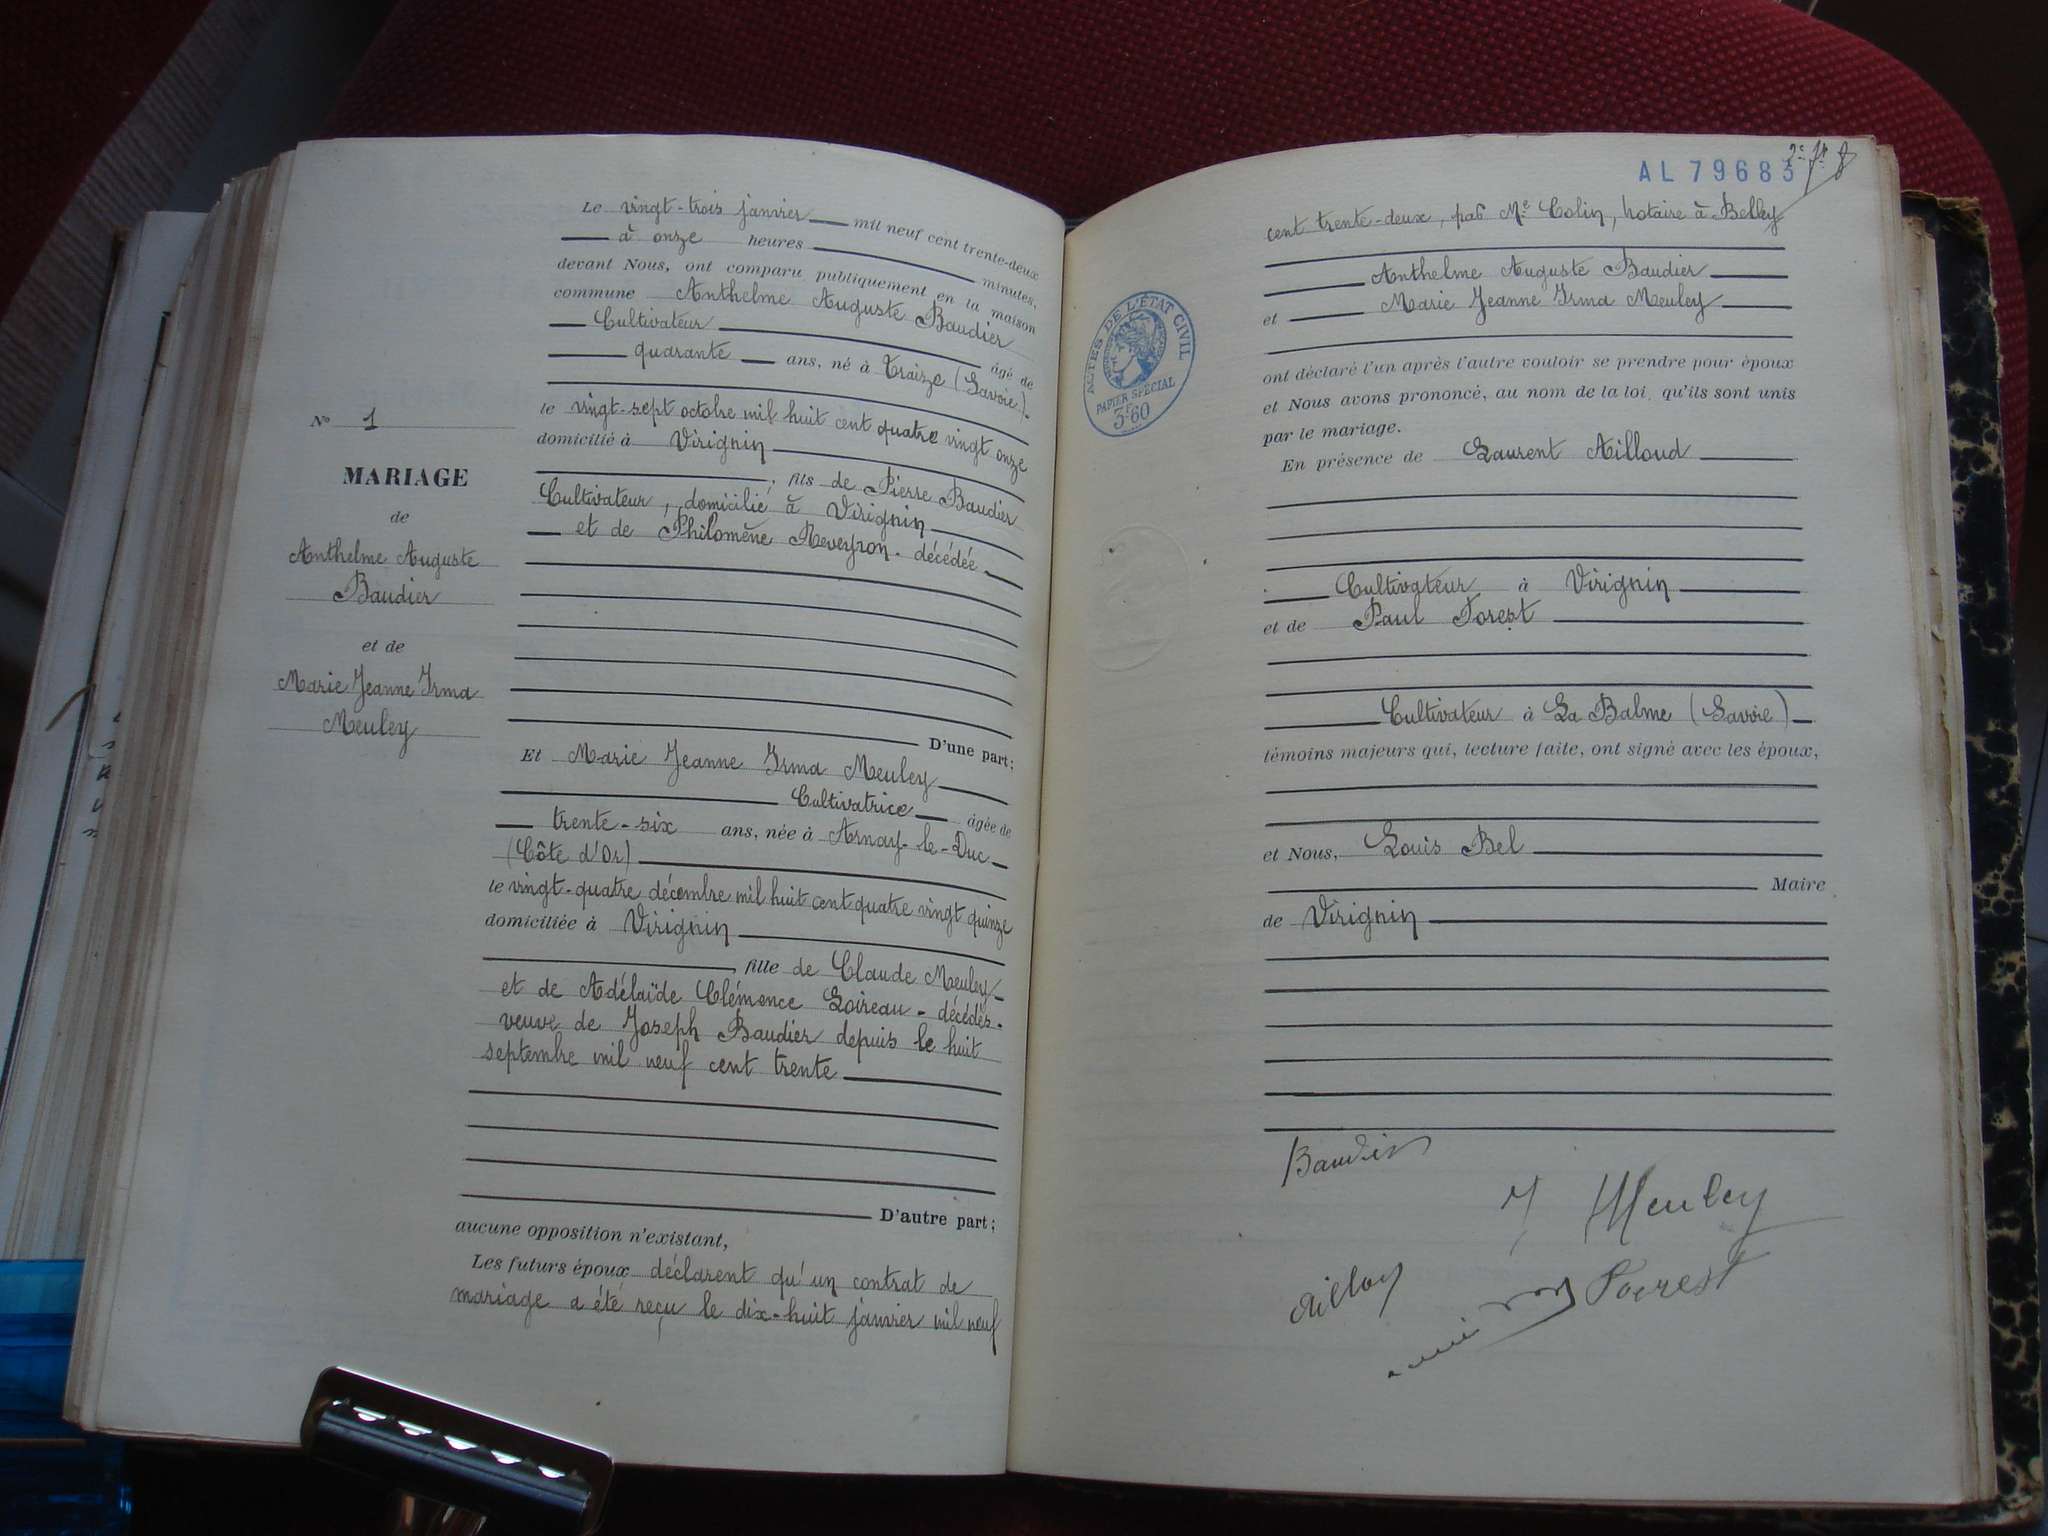 N° 1
MARIAGE
de
Anthelme Auguste
Baudier
et de
Marie Jeanne Irma
Meuley
Le vingt-trois janvier mil neuf cent trente-deux
à onze heures minutes,
devant Nous, ont comparu publiquement en la maison
commune Anthelme Auguste Baudier
Cultivateur âgé de
quarante ans, né à Traize (Savoie)
le vingt-sept octobre mil huit cent quatre vingt onze
domicilié à Virignin
, fils de Pierre Baudier
Cultivateur, domicilié à Virignin
et de Philomène Reveyron - décédée
D'une part;
Et Marie Jeanne Irma Meuley
Cultivatrice âgée de
trente-six ans, née à Arnay-le-Duc
(Côte d'Or)
le vingt-quatre décembre mil huit cent quatre vingt quinze
domiciliée à Virignin
, fille de Claude Meuley
et de Adélaïde Clémence Loireau - décédés.
veuve de Joseph Baudier depuis le huit
septembre mil neuf cent trente
D'autre part;
aucune opposition n'existant,
Les futurs époux déclarent qu'un contrat de
mariage a été reçu le dix-huit janvier mil neuf
AL 79683
cent trente-deux, par Me Colin, notaire à Belley
Anthelme Auguste Baudier
et Marie Jeanne Irma Meuley
ACTES DE L'ÉTAT CIVIL
PAPIER SPÉCIAL
3F60
ont déclaré l'un après l'autre vouloir se prendre pour époux
et Nous avons prononcé, au nom de la loi, qu'ils sont unis
par le mariage.
En présence de Laurent Ailloud
Cultivateur à Virignin
et de Paul Forest
Cultivateur à La Balme (Savoie)
témoins majeurs qui, lecture faite, ont signé avec les époux,
et Nous, Louis Bel
Maire
de Virignin
Baudier
J Meuley
Forest